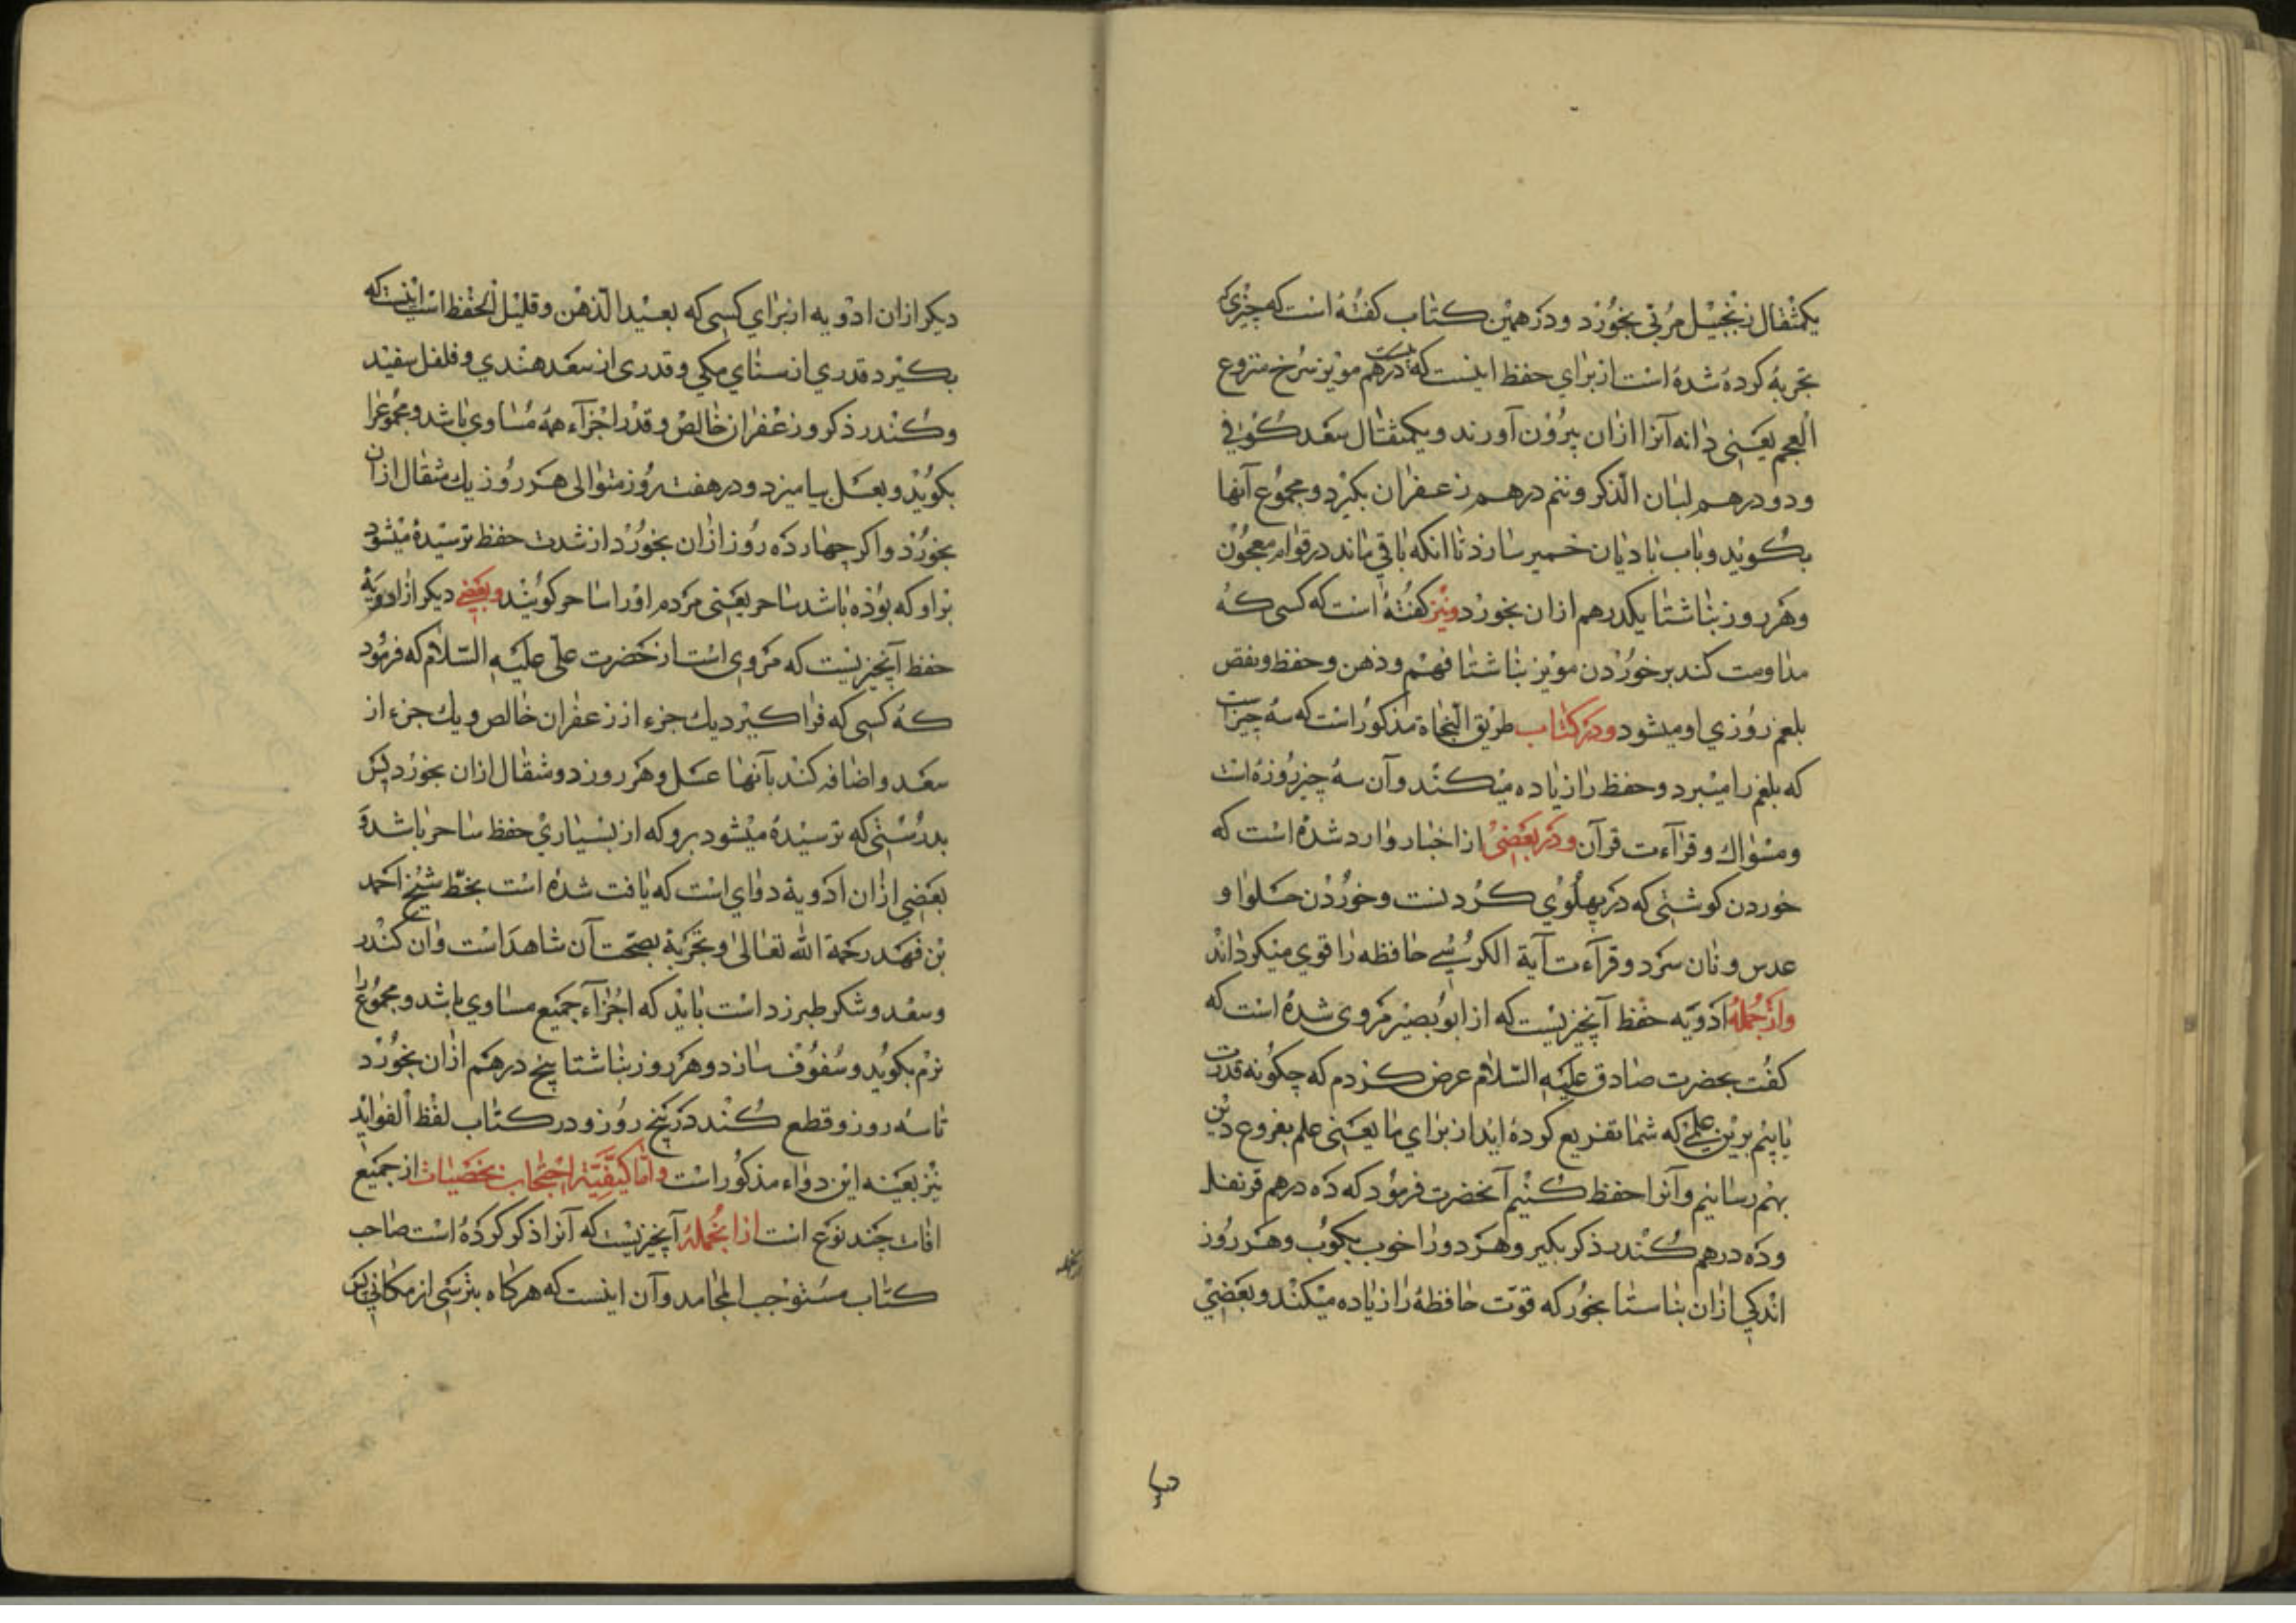 یکمثقال زنجبیل مربی بخورد ودر همین کتاب کفته است که چیزی که
تجربه کرده شده است از برای حفظ اینست که بیست درهم مویز سرخ منزوع
العجم یعنی دانه آنرا ازان بیرون آورند ویکمثقال سعد کوفی
ودو درهم لبان الذکر ونیم درهم زعفران بکیرد ومجموع آنها
بکوبد وباب بادیان خمیر سازد تا انکه باقی ماند در قوام معجون
وهر روز بناشتا یکدرهم ازان بخورد ونیز کفته است که کسی که
مداومت کند بر خوردن مویز بناشتا فهم وذهن وحفظ ونقص
بلغم روزی او میشود ودر کتاب طریق النجاة مذکور است که سه چیز است
که بلغم را میبرد وحفظ را زیاده میکند وآن سه چیز روزه است
ومسواك وقرآءت قرآن ودر بعضی از اخبار وارد شده است که
خوردن کوشتی که در پهلوی کردنست وخوردن حلوا و
عدس ونان سرد وقرآءت آیة الکرسی حافظه را قوی میکرداند
واز جمله ادویه حفظ آنچیزیست که از ابو بصیر مروی شده است که
کفت بحضرت صادق علیه السلام عرض کردم که چکونه قدرت
یابیم برین علمی که شما تفریع کرده اید از برای ما یعنی علم بفروع دین
بهم رسانیم وآنرا حفظ کنیم آنحضرت فرمود که ده درهم قرنفل
وده درهم کندر ذکر بکیر وهر دو را خوب بکوب وهر روز
اندکی ازان بناستا بخور که قوت حافظه را زیاده میکند وبعضی
دیکر ازان ادویه از برای کسی که بعید الذهن وقلیل الحفظ است اینست که
بکیرد قدری از سنای مکی وقدری از سعد هندی وفلفل سفید
وکندر ذکر وزعفران خالص وقدر اجزآء همه مساوی باشد ومجموعرا
بکوبد وبعسل بیامیزد ودر هفت روز متوالی هر روز یك مثقال ازان
بخورد واکر چهارده روز ازان بخورد از شدت حفظ ترسیده میشود
براو که بوده باشد ساحر یعنی مردم اورا ساحر کویند وبعضی دیکر از ادویه
حفظ آنچیزیست که مروی است از حضرت علی علیه السلام که فرمود
که کسی که فرا کیرد یك جزء از زعفران خالص ویك جزء از
سعد واضافه کند بآنها عسل وهر روز دو مثقال ازان بخورد پس
بدرستی که ترسیده میشود برو که از بسیاری حفظ ساحر باشد و
بعضی ازان ادویة دوای است که یافت شده است بخط شیخ احمد
بن فهد رحمة الله تعالی وتجربة بصحت آن شاهد است وان کندر
وسعد وشکر طبرزد است باید که اجزآء جمیع مساوی باشد ومجموع را
نرم بکوبد وسفوف سازد وهر روز بناشتا پنج درهم ازان بخورد
تا سه روز وقطع کند در پنج روز ودر کتاب لفظ الفواید
نیز بعینه این دواء مذکور است واما کیفیة احتجاب بخصیات از جمیع
افات چند نوع است ازانجمله آنچیزیست که آنرا ذکر کرده است صاحب
کتاب مستوجب المحامد وآن اینست که هرکاه بترسی از مکانی پس